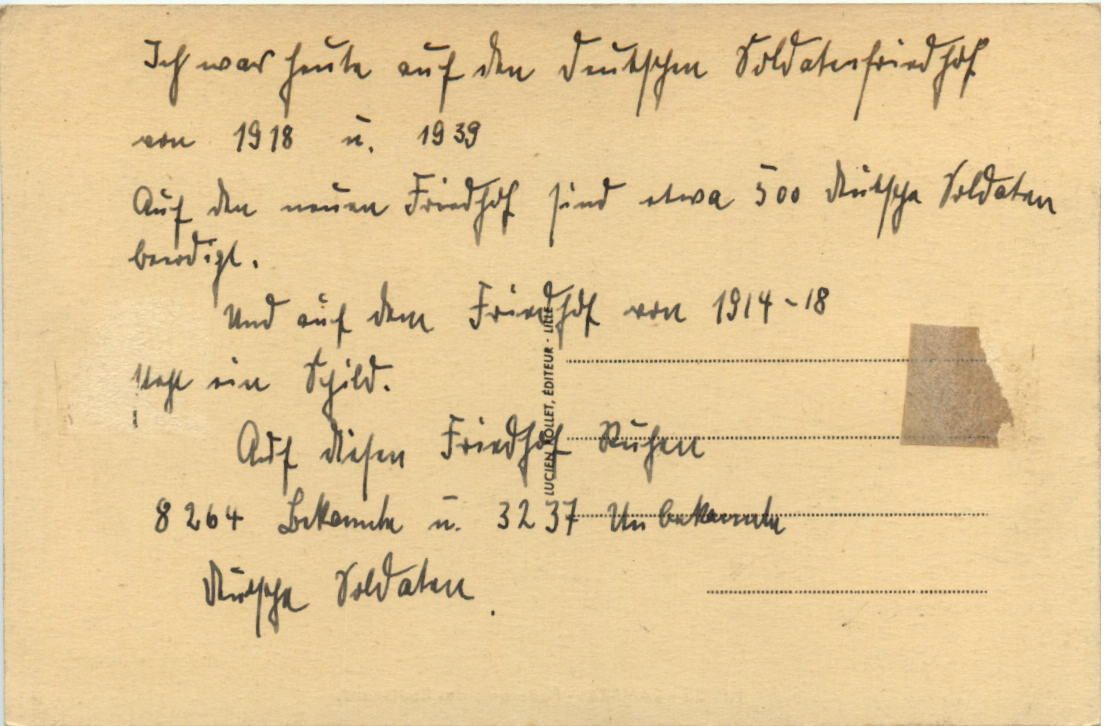 Ich war heute auf den deutschen Soldatenfriedhof
von 1918 u. 1939
Auf den neuen Friedhof sind etwa 500 deutsche Soldaten
beerdigt.
Und auf dem Friedhof von 1914-18
steht ein Schild.
Auf diesen Friedhof Ruhen
8264 Bekannte u. 3237 Unbekannte
deutsche Soldaten.
LUCIEN POLLET, ÉDITEUR - LILLE